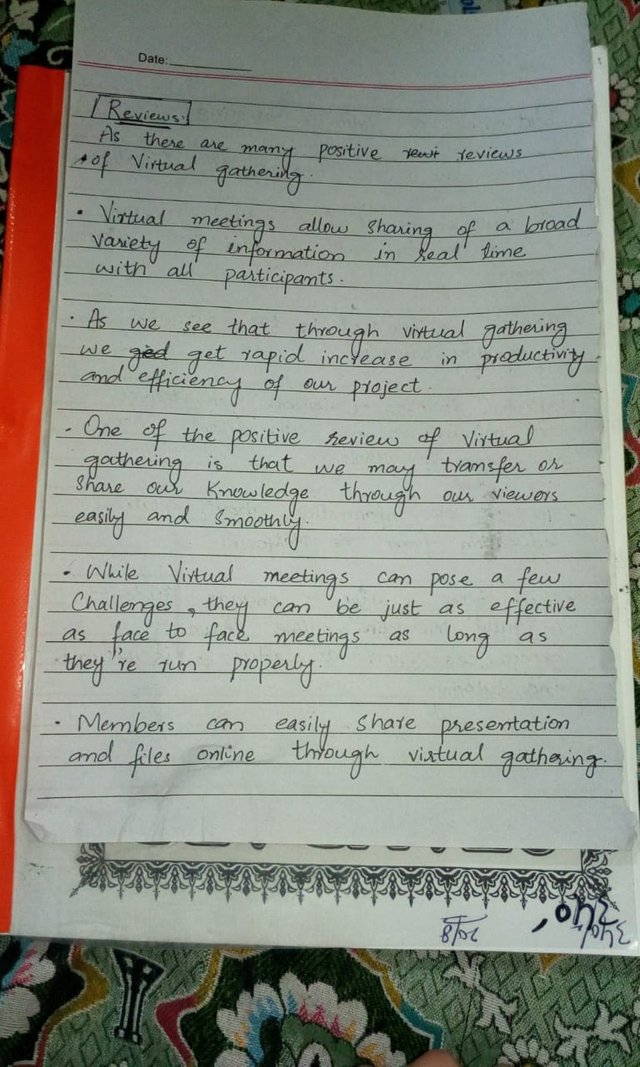 Date:
Reviews:
As there are many positive reviews
of Virtual gathering.
• Virtual meetings allow sharing of a broad
variety of information in real time
with all participants.
• As we see that through virtual gathering
we get rapid increase in productivity
and efficiency of our project.
• One of the positive review of Virtual
gathering is that we may transfer or
share our Knowledge through our viewers
easily and smoothly.
• While Virtual meetings can pose a few
Challenges, they can be just as effective
as face to face meetings as long as
they're run properly.
• Members can easily share presentation
and files online through virtual gathering.